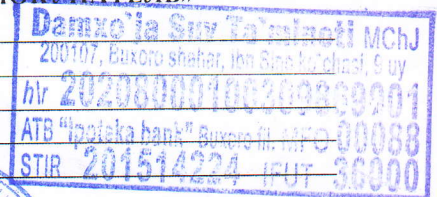 Damxo'ja Suv Ta'minoti MChJ
200107, Buxoro shahar, Ibn Sino ko'chasi, 9 uy
h\r
ATB "Ipoteka bank" Buxoro fil. MFO 00068
STIR 201514224 IFUT 36000